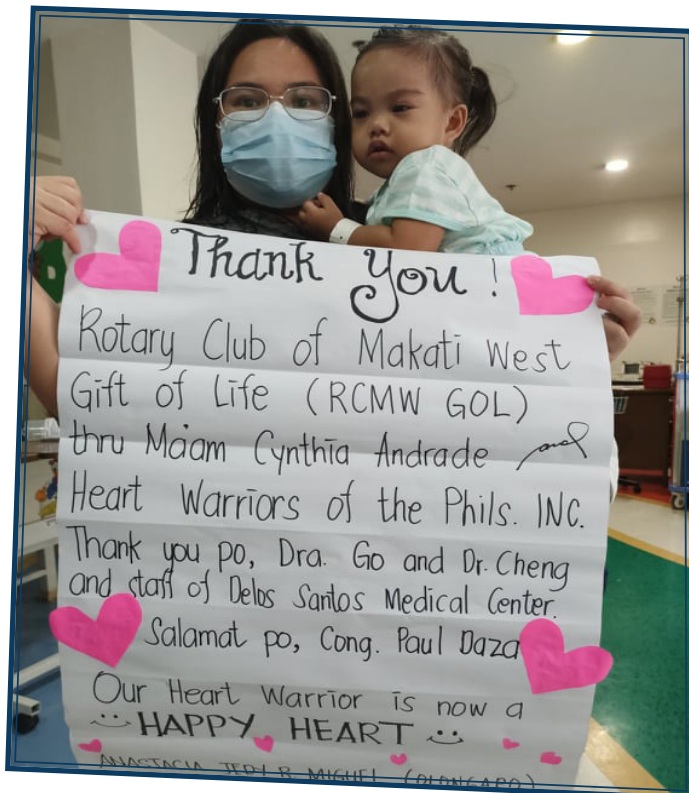 Thank You!
Rotary Club of Makati West
Gift of Life (RCMW GOL)
thru Ma'am Cynthia Andrade and
Heart Warriors of the Phils. INC.
Thank you po, Dra. Go and Dr. Cheng
and staff of Delos Santos Medical Center.
Salamat po, Cong. Paul Daza
Our Heart Warrior is now a
HAPPY HEART
ANASTACIA JEDY R. MIGUEL (OLONGAPO)